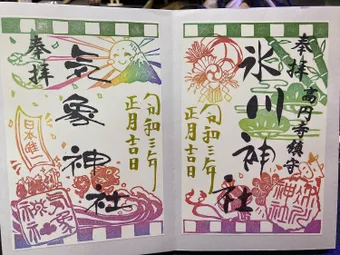 奉拝
高円寺鎮守
氷川神社
令和三年
正月吉日
奉拝
気象神社
令和三年
正月吉日
日本唯一